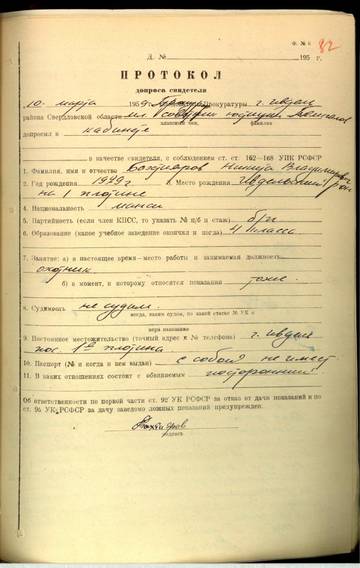 Ф. № 6
82
Д. № 195 г.
ПРОТОКОЛ
допроса свидетеля
10 марта 1959 г. Прокуратуры г. Ивдель
района Свердловской области мл. советник юстиции
классный чин, фамилия
допросил в кабинете
в качестве свидетеля, с соблюдением ст. ст. 162—168 УПК РСФСР
1. Фамилия, имя и отчество Бахтияров Никита Владимирович
2. Год рождения 1929 г 3. Место рождения Ивдельский р-он
4. Национальность манси
5. Партийность (если член КПСС, то указать № п/б и стаж) б/п
6. Образование (какое учебное заведение окончил и когда) 4 класса
7. Занятие: а) в настоящее время — место работы и занимаемая должность
охотник
б) в момент, к которому относится показания тоже.
8. Судимость не судим.
когда, каким судом, по какой статье № УК и
мера наказания
9. Постоянное местожительство (точный адрес и № телефона) г. Ивдель
пос. 1
10. Паспорт (№ и когда и кем выдан) с собой не имеет
11. В каких отношениях состоит с обвиняемым посторонний
Об ответственности по первой части ст. 92 УК РСФСР за отказ от дачи показаний и по
ст. 95 УК РСФСР за дачу заведомо ложных показаний предупрежден.
Бахтияров
подпись